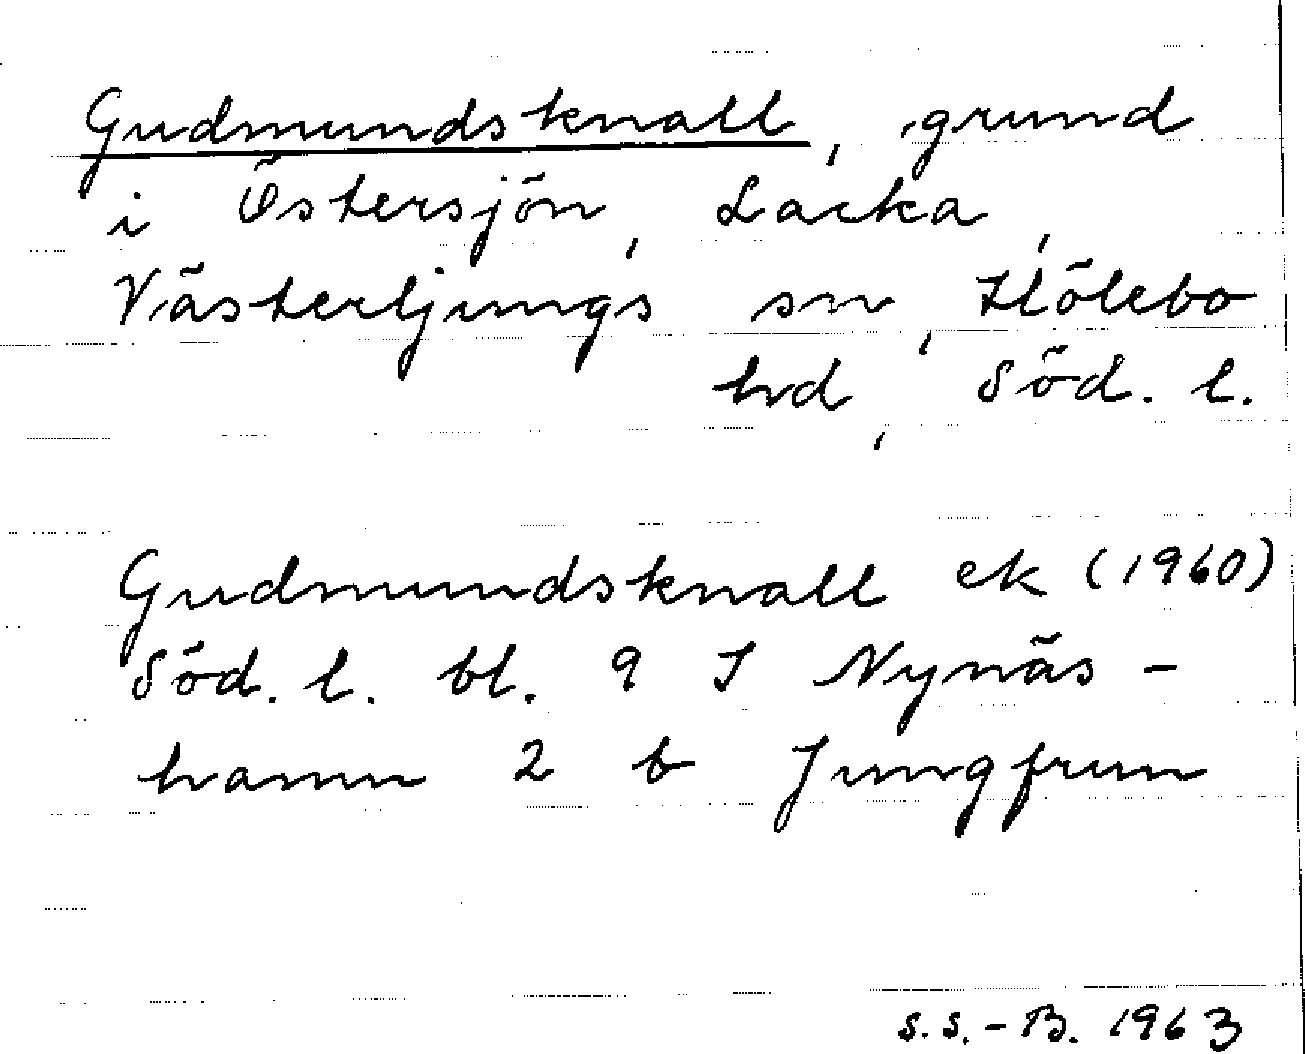 Gudmundsknall, grund
i Östersjön, Lacka,
Västerljungs sn, Hölebo
hd, Söd. l.
Gudmundsknall ek (1960)
Söd. l. bl. 9 I Nynäs-
hamn 2 b Jungfrun
S.S.-B. 1963